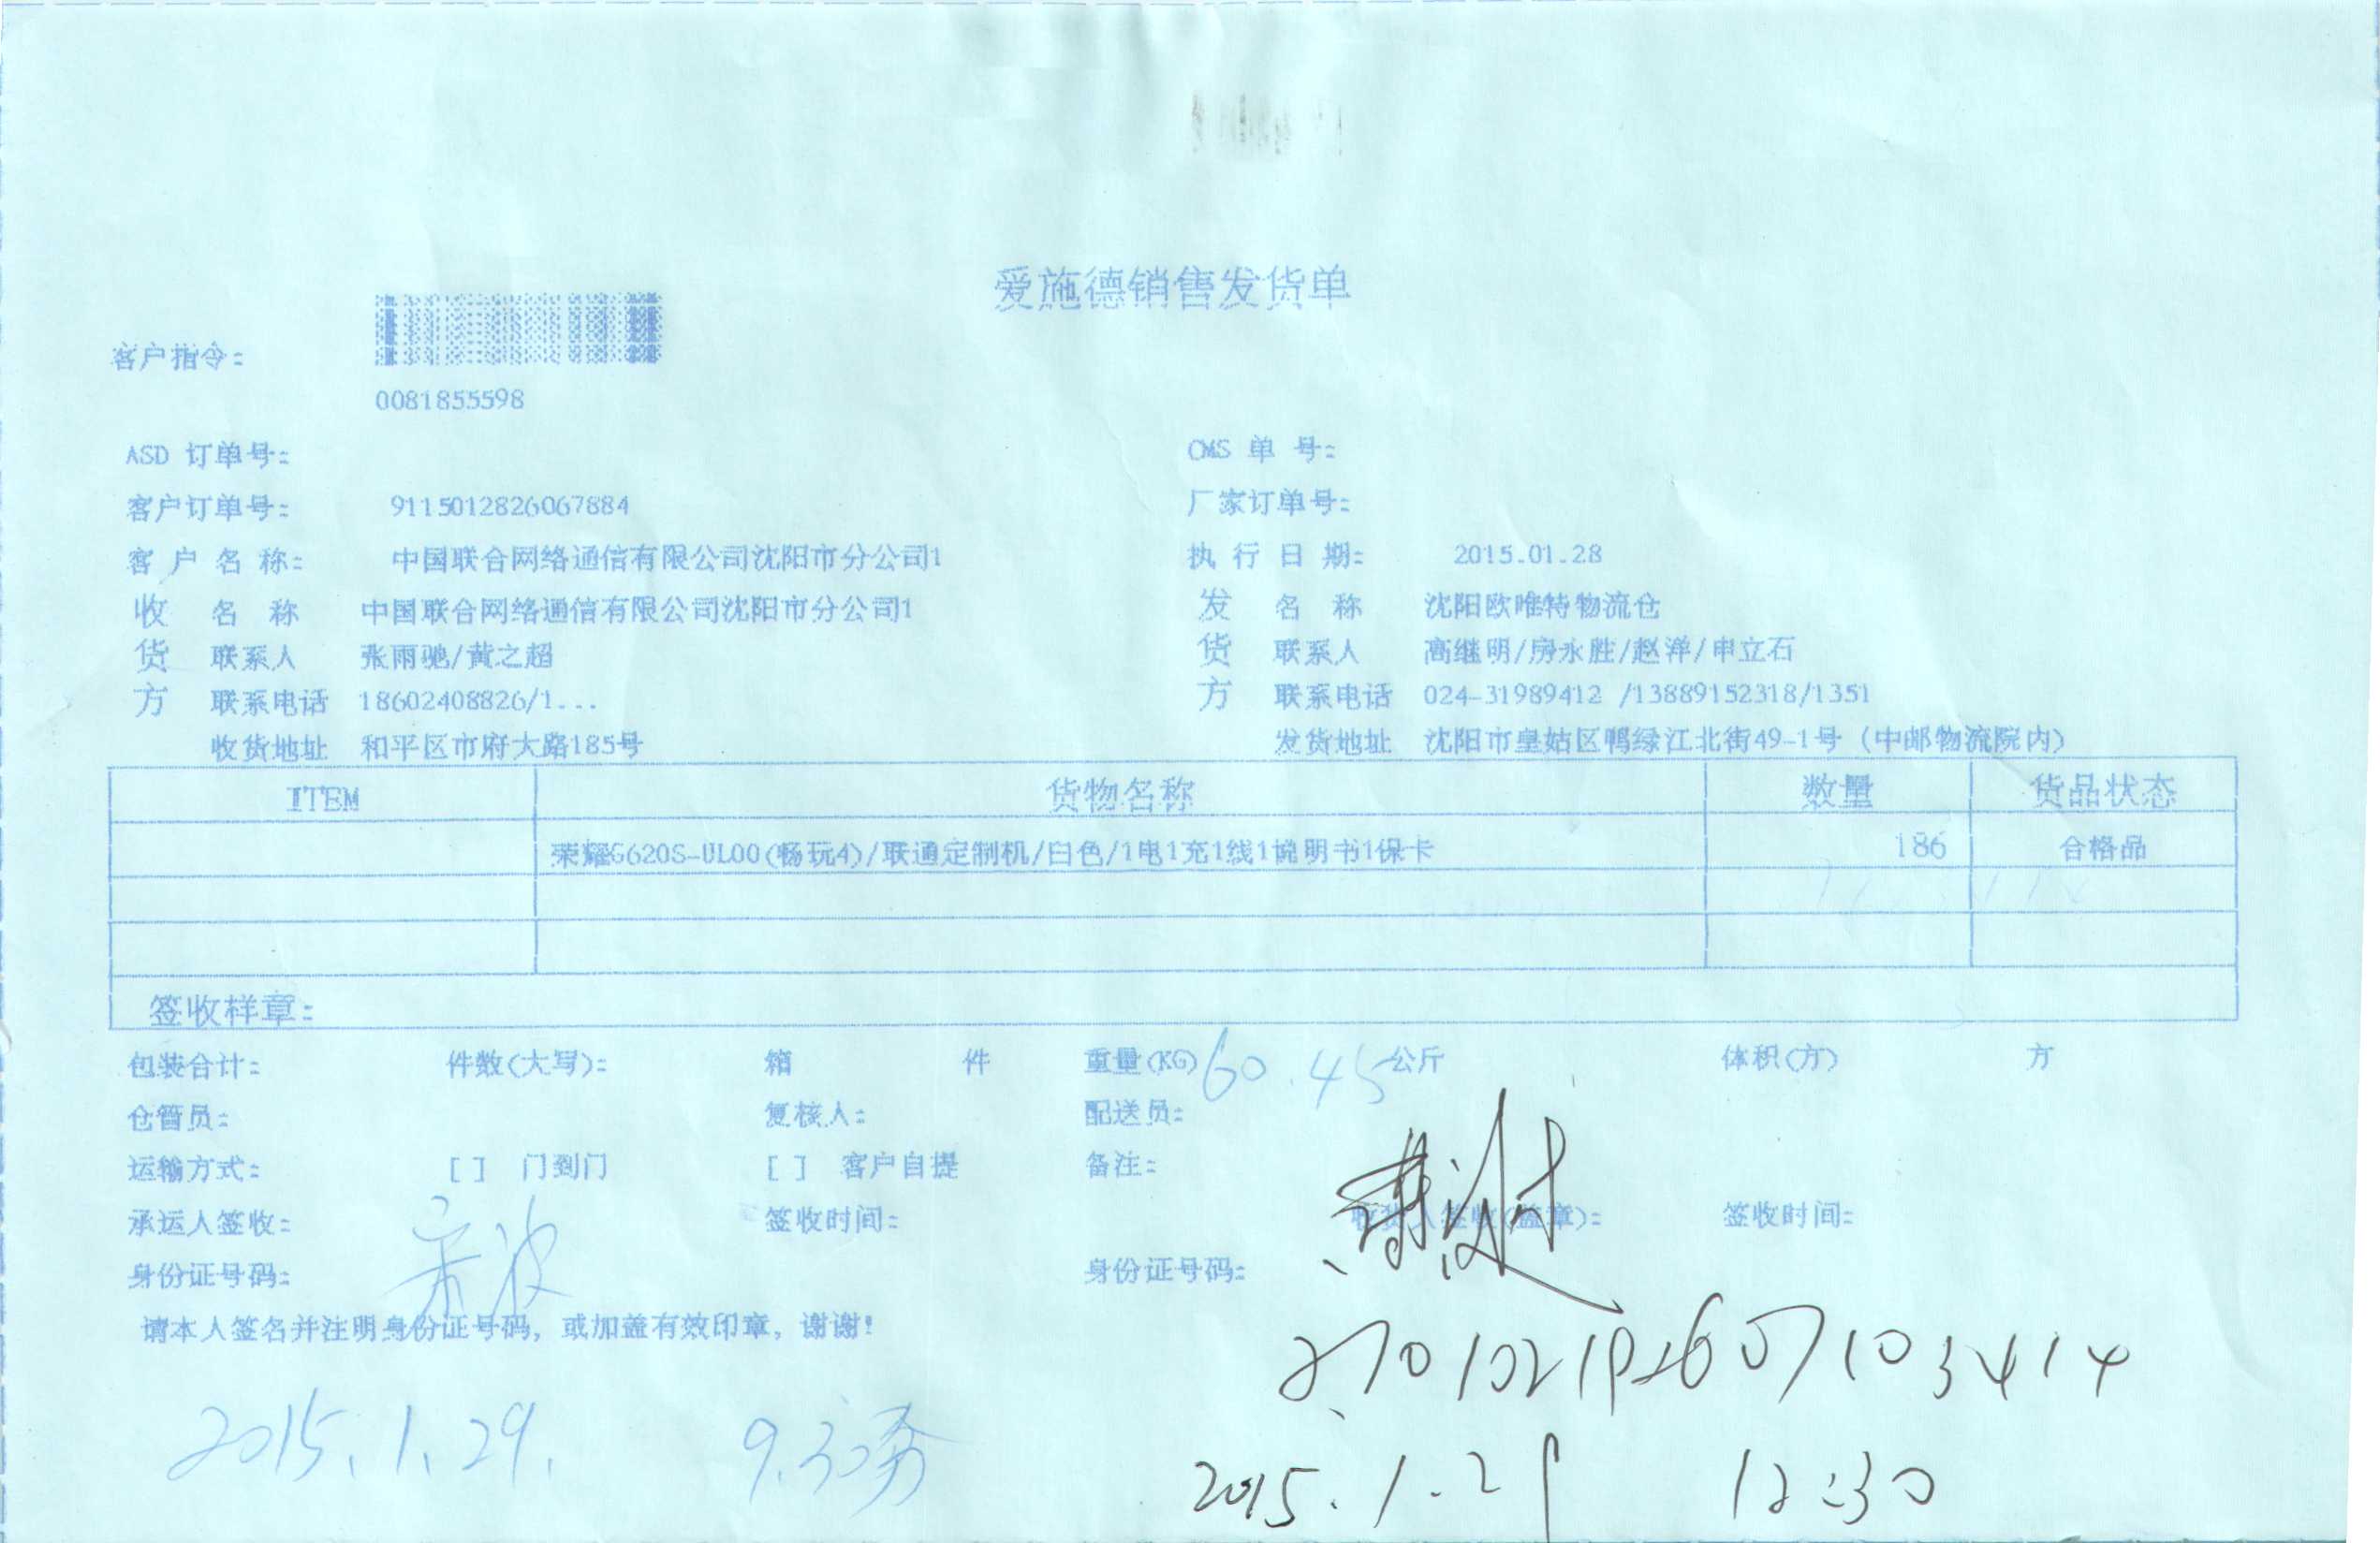 爱施德销售发货单
客户指令:
0081855598
ASD 订单号: CMS 单 号:
客户订单号: 9115012826067884 厂家订单号:
客 户 名 称: 中国联合网络通信有限公司沈阳市分公司1 执 行 日 期: 2015.01.28
收 名 称 中国联合网络通信有限公司沈阳市分公司1 发 名 称 沈阳欧唯特物流仓
货 联系人 张雨驰/黄之超 货 联系人 高继明/房永胜/赵洋/申立石
方 联系电话 18602408826/1... 方 联系电话 024-31989412 /13889152318/1351
收货地址 和平区市府大路185号 发货地址 沈阳市皇姑区鸭绿江北街49-1号 (中邮物流院内)
ITEM 货物名称 数量 货品状态
荣耀G620S-UL00(畅玩4)/联通定制机/白色/1电1充1线1说明书1保卡 186 合格品
签收样章:
包装合计: 件数(大写): 箱 件 重量(KG) 60.45 公斤 体积(方) 方
仓管员: 复核人: 配送员:
运输方式: [ ] 门到门 [ ] 客户自提 备注:
承运人签收: 签收时间: 收货人签收(盖章): 签收时间:
身份证号码: 身份证号码:
请本人签名并注明身份证号码, 或加盖有效印章, 谢谢!
2015.1.29. 9.30
2015.1.29 12:30